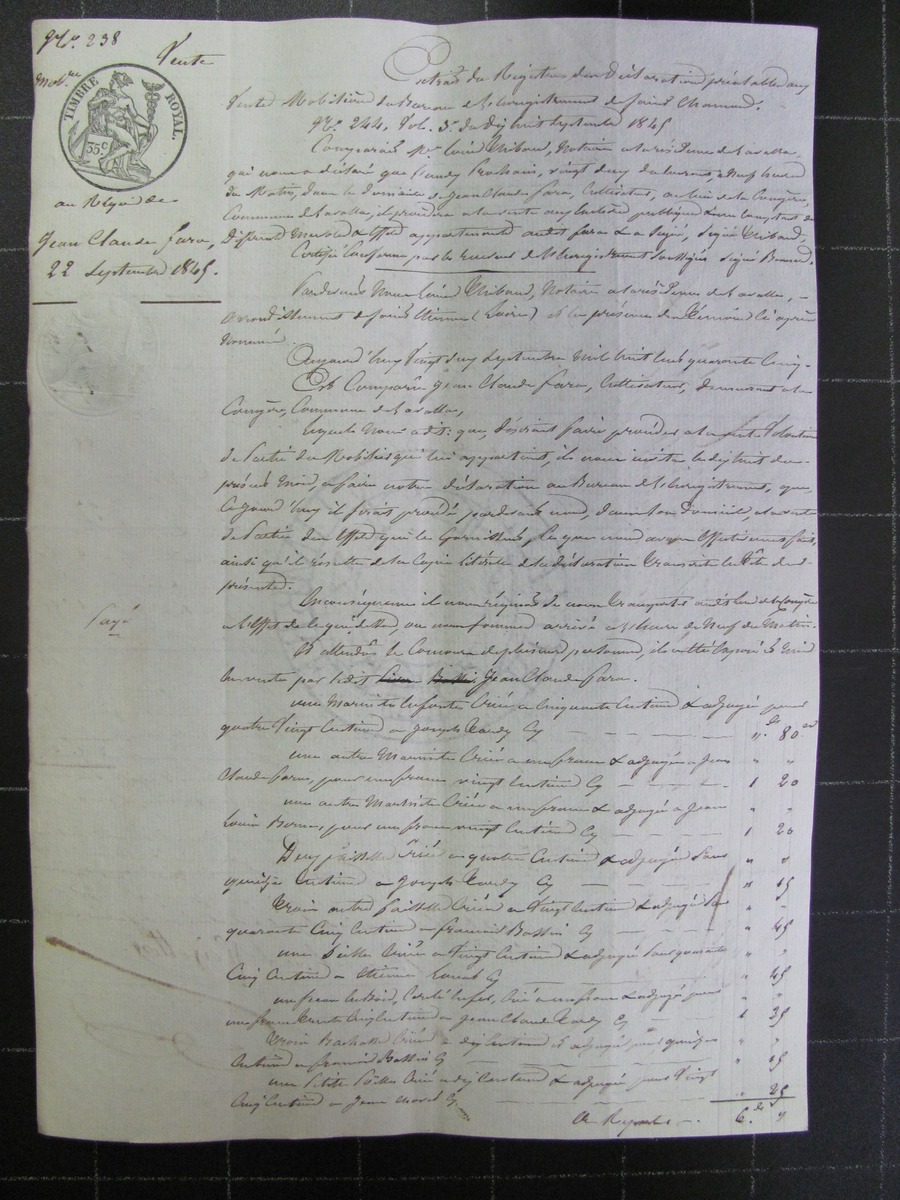 N°. 238
Vente
Mob.re
TIMBRE ROYAL.
35 c
au Requis de
Jean Claude fara,
22 Septembre 1845.
Extrait du Registre des Déclarations préalables aux
Ventes Mobilières du Bureau de l'Enregistrement de Saint Chamond.
N°. 244, Vol. 3. du dix huit Septembre 1845
Comparait Me. Louis Thibaud, Notaire à la résidence de Lavalla,
qui nous a déclaré que Lundy Prochain, vingt deux du Courant, à neuf heures
du Matin, dans le domicile de Jean Claude fara, Cultivateur, au lieu de la
Commune de Lavalla, il procédera à la vente aux Enchères publiques au comptant de
Différents Meubles & Effets appartenants audit fara & a Signé, Signé Thibaud,
Certifié Conforme par le Receveur de l'Enregistrement Soussigné, Signé
Pardevant Nous Louis Thibaud, Notaire à la résidence de Lavalla,
arrondissement de Saint Etienne (Loire) et en présence des témoins ci après
nommés.
Aujourd'huy Vingt deux Septembre mil huit cent quarante Cinq.
Est Comparu Jean Claude fara, Cultivateur, demeurant à la
Commune de Lavalla,
Lequel Nous a dit: que, désirant faire procéder à la vente Volontaire
de Partie du Mobilier qui lui appartient, il nous invita le dix huit du
présent mois, à faire notre déclaration au Bureau de l'Enregistrement, que,
ce jourd'huy il serait procédé pardevant nous, dans son Domicile, à la vente
de Partie des Effets qui le Garnissent, ce que nous avons Effectivement fait,
ainsi qu'il résulte de la Copie littérale de la déclaration transcrite en tête des
présentes.
En conséquence il nous a requis de nous transporter audit lieu de la
à l'Effet de la quo dessus, ou nous sommes arrivés à l'heure de Neuf du Matin.
Et attendu le Concours de plusieurs personnes, il a été exposé & mis
en vente par ledit Jean Claude fara.
une Marmite Criée à Cinquante Centimes & adjugée pour
quatre Vingt Centimes à Joseph Tardy Cy — " 80
une autre Marmite Criée à un franc & adjugée à Jean " "
Claude fara, pour un franc vingt Centimes Cy — 1 20
une autre Marmite Criée à un franc & adjugée à Jean " "
Louis pour un franc vingt Centimes Cy — 1 20
Deux Criées à quatre Centimes & adjugées pour " "
quinze Centimes à Joseph Tardy Cy — " 15
Trois autres Criées à Vingt Centimes & adjugées pour " "
quarante Cinq Centimes à francois Cy — " 45
une Criée à Vingt Centimes & adjugée pour quarante " "
Cinq Centimes à Etienne Cy — " 45
un en Bois, Criée à un franc & adjugé pour " "
un franc trente Cinq Centimes à Jean Claude Tardy Cy — 1 35
Trois Criées à dix Centimes & adjugées pour quinze " "
Centimes à francois Cy — " 15
une Petite Criée à dix Centimes & adjugée pour Vingt
Cinq Centimes à Jean Cy — " 25
A Reporter — 6 "
Payé